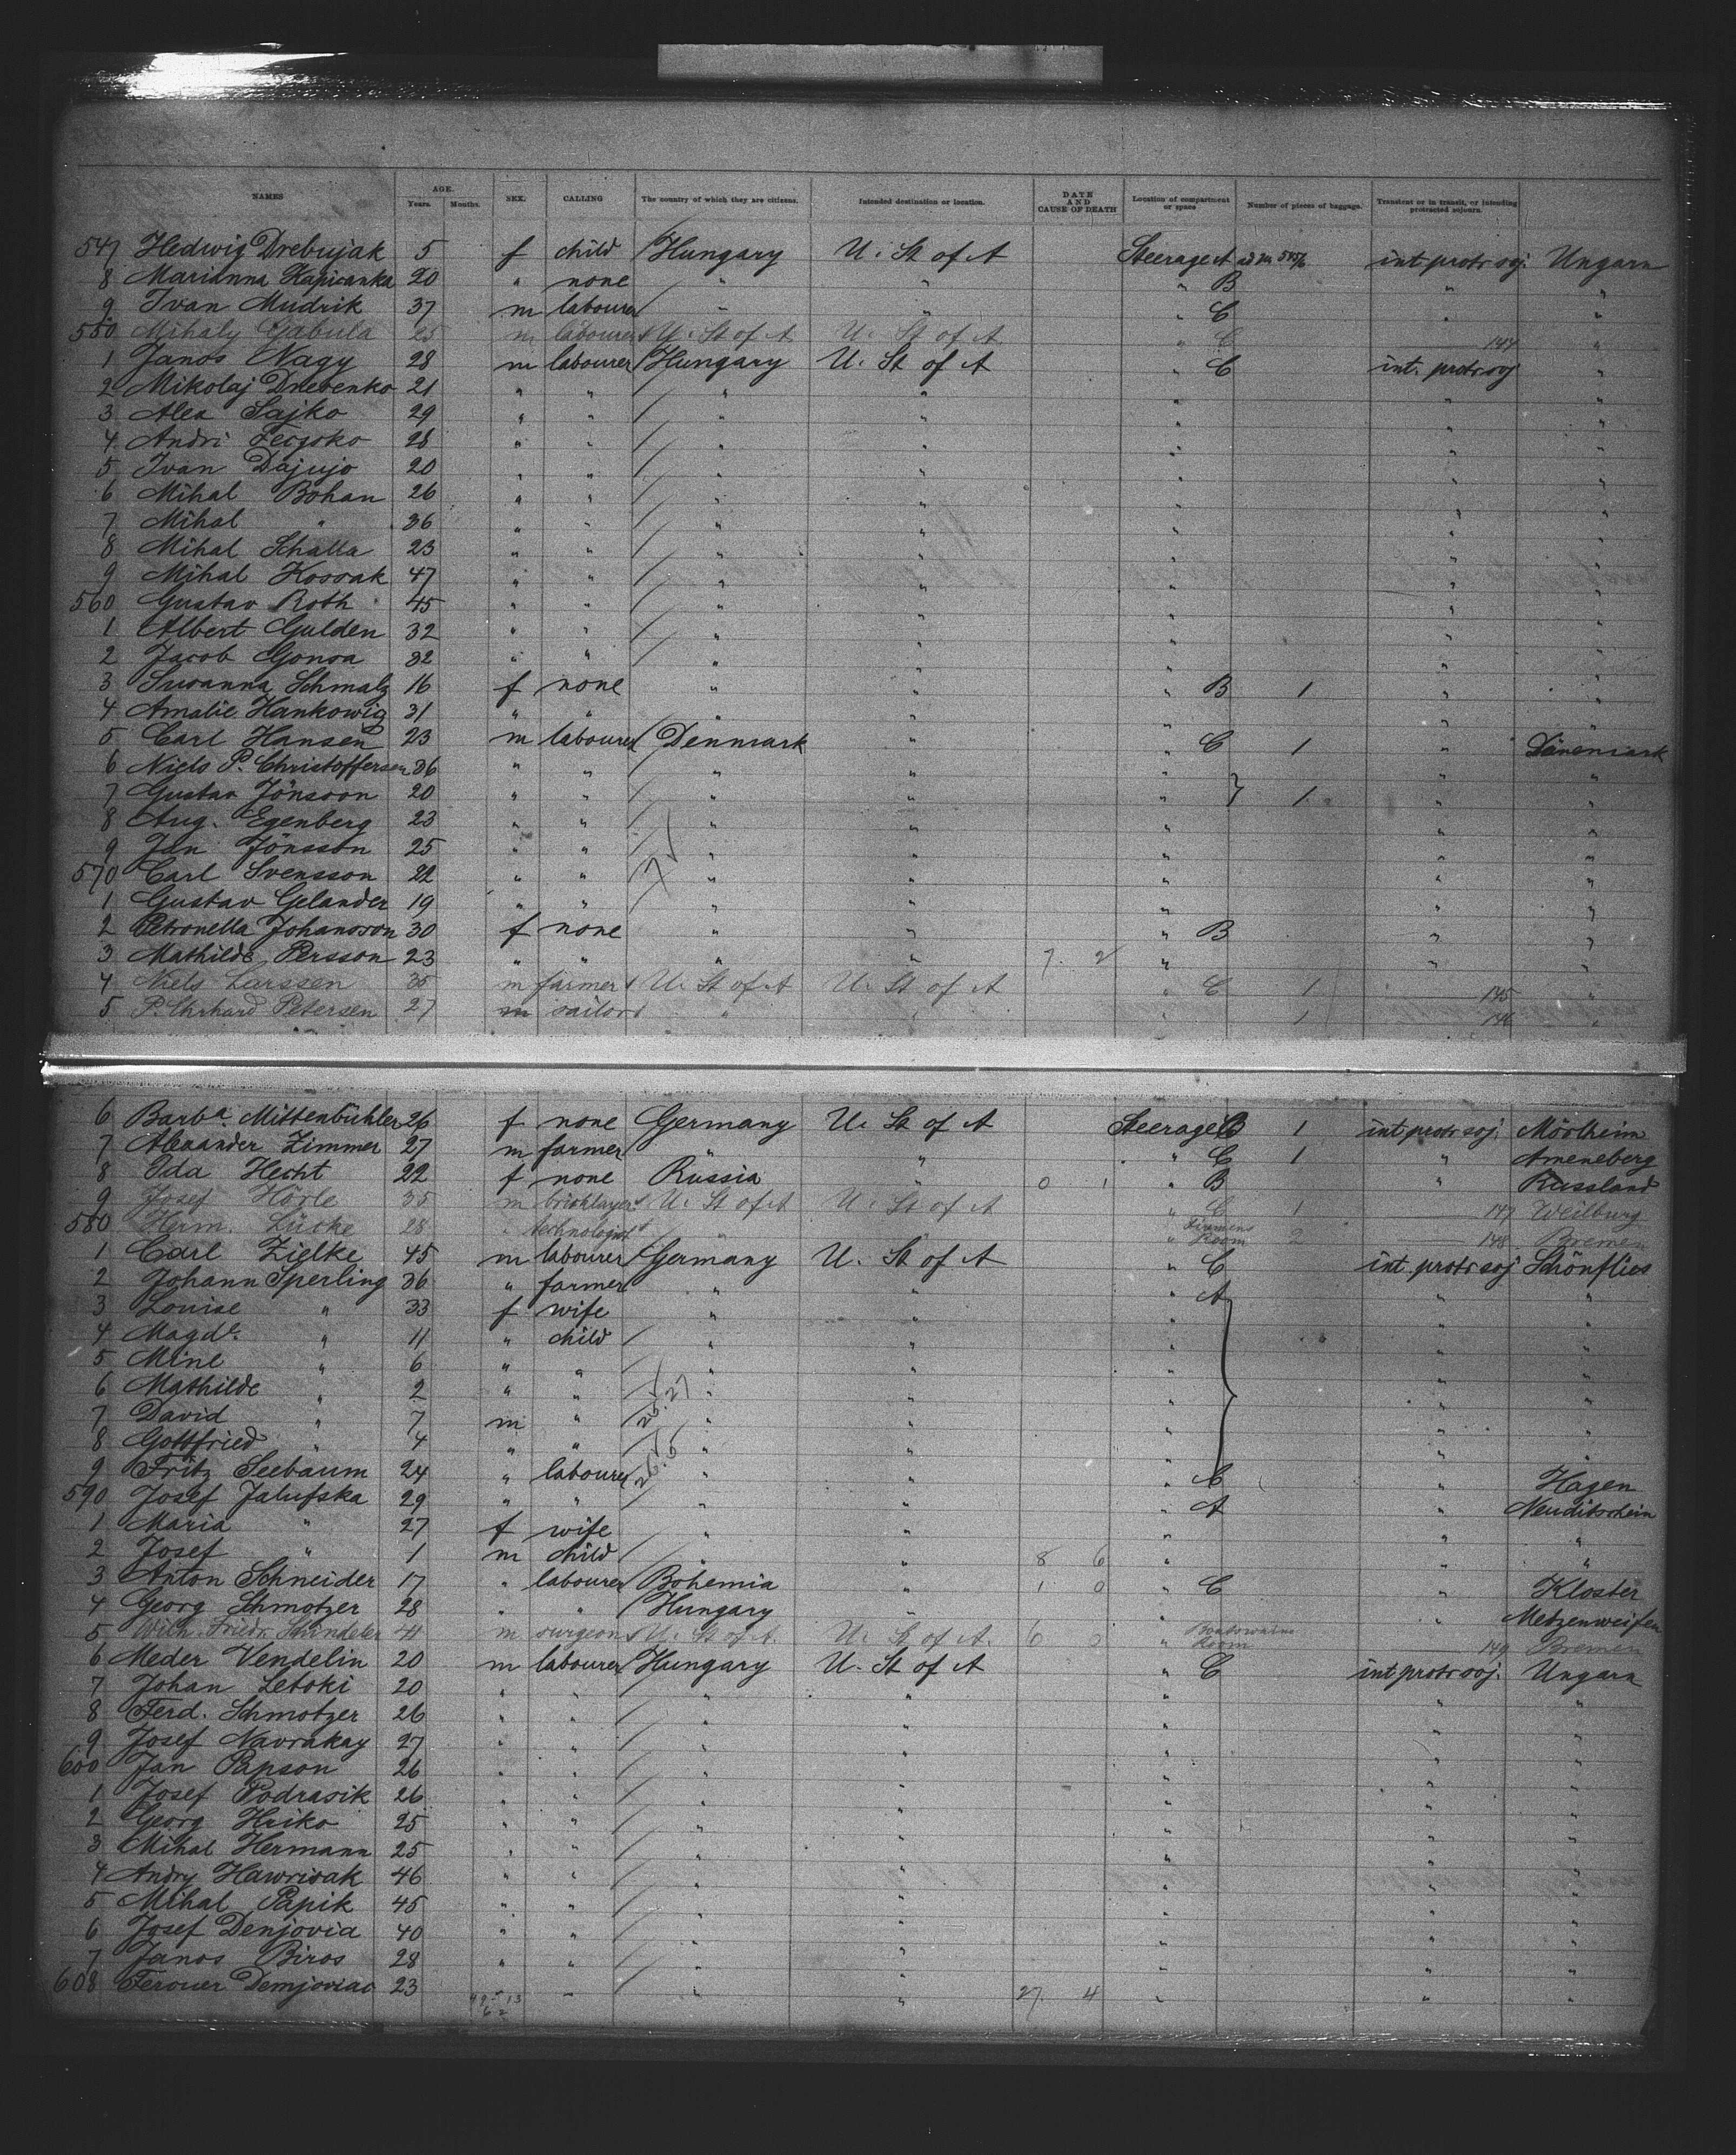 NAMES AGE. Years. Months. SEX. CALLING The country of which they are citizens. Intended destination or location. DATE AND CAUSE OF DEATH Location of compartment or space Number of pieces of baggage. Transient or in transit, or intending protracted sojourn.
547 Hedwig Drebujak 5 f child Hungary U. St of A Steerage A int. protr. soj. Ungarn
8 Marianna Kapicanka 20 " none " " " B " "
9 Ivan Mudrik 37 m labourer " " " C " "
550 Mihaly Gabula 25 m labourer U. St of A U. St of A " C 144 "
1 Janos Nagy 28 m labourer Hungary U. St of A " C int. protr soj "
2 Mikolaj Drebenko 21 " " " " " " "
3 Alex Sajko 29 " " " " " " "
4 Andri Fecjoko 28 " " " " " " "
5 Ivan Dajujo 20 " " " " " " "
6 Mihal Bohan 26 " " " " " " "
7 Mihal " 36 " " " " " " "
8 Mihal Schalla 23 " " " " " " "
9 Mihal Kossak 47 " " " " " " "
560 Gustav Roth 45 " " " " " " "
1 Albert Gulden 32 " " " " " " "
2 Jacob Gonsa 32 " " " " " " "
3 Susanna Schmalz 16 f none " " " B 1 " "
4 Amalie Hankowig 31 " " " " " " "
5 Carl Hansen 23 m labourer Denmark " " C 1 " Dänemark
6 Niels P. Christoffersen 36 " " " " " " "
7 Gustav Jönsson 20 " " " " " 1 " "
8 Aug. Egenberg 23 " " " " " " "
9 Jan Jönsson 25 " " " " " " "
570 Carl Svensson 22 " " " " " " "
1 Gustav Gelander 19 " " " " " " "
2 Petronella Johansson 30 f none " " " B " "
3 Mathilde Persson 23 " " " " 7. 2 " " "
4 Niels Larssen 35 m farmer U. St of A U. St of A " C 1 145 "
5 P. Ehrhard Petersen 27 m sailor " " " 1 146 "
6 Barba. Mittenbühler 26 f none Germany U. St of A Steerage B 1 int protr soj. Mörlheim
7 Alexander Zimmer 27 m farmer " " " C 1 " Ameneberg
8 Ida Hecht 22 f none Russia " 0 1 " B " Russland
9 Josef Hörle 35 m bricklayer U. St of A U. St of A " C 1 147 Weilburg
580 Herm. Lücke 28 " technologist " " " Firemens Room 2 148 Bremen
1 Carl Zielke 45 m labourer Germany U. St of A " C int. protr soj Schönflies
2 Johann Sperling 36 " farmer " " " A " "
3 Louise " 33 f wife " " " "
4 Magde. " 11 " child " " " "
5 Mine " 6 " " " " " "
6 Mathilde " 2 " " " " " "
7 David " 7 m " " " " "
8 Gottfried " 4 " " " " " "
9 Fritz Seebaum 24 " labourer " " " C " Hagen
590 Josef Jalufska 29 " " " " " A " Neuditschein
1 Maria " 27 f wife " " " " "
2 Josef " 1 m child " " 8 6 " " "
3 Anton Schneider 17 " labourer Bohemia " 1 0 " C " Kloster
4 Georg Schmotzer 28 " " Hungary " " " Metzenseifen
5 Wilh. Friedr. Schindeler 41 m surgeon U. St of A. U. St of A. 6 0 " Boatswains Room 149 Bremen
6 Meder Vendelin 20 m labourer Hungary U. St of A " C int protr soj. Ungarn
7 Johan Letoki 20 " " " " " " "
8 Ferd. Schmotzer 26 " " " " " " "
9 Josef Navrakay 27 " " " " " " "
600 Jan Papson 26 " " " " " " "
1 Josef Podrasik 26 " " " " " " "
2 Georg Hriko 25 " " " " " " "
3 Mihal Hermann 25 " " " " " " "
4 Andry Hawrisak 46 " " " " " " "
5 Mihal Papik 45 " " " " " " "
6 Josef Denjovia 40 " " " " " " "
7 Janos Biros 28 " " " " " " "
608 Ferouer Demjoviac 23 " " " 27. 4 " " "